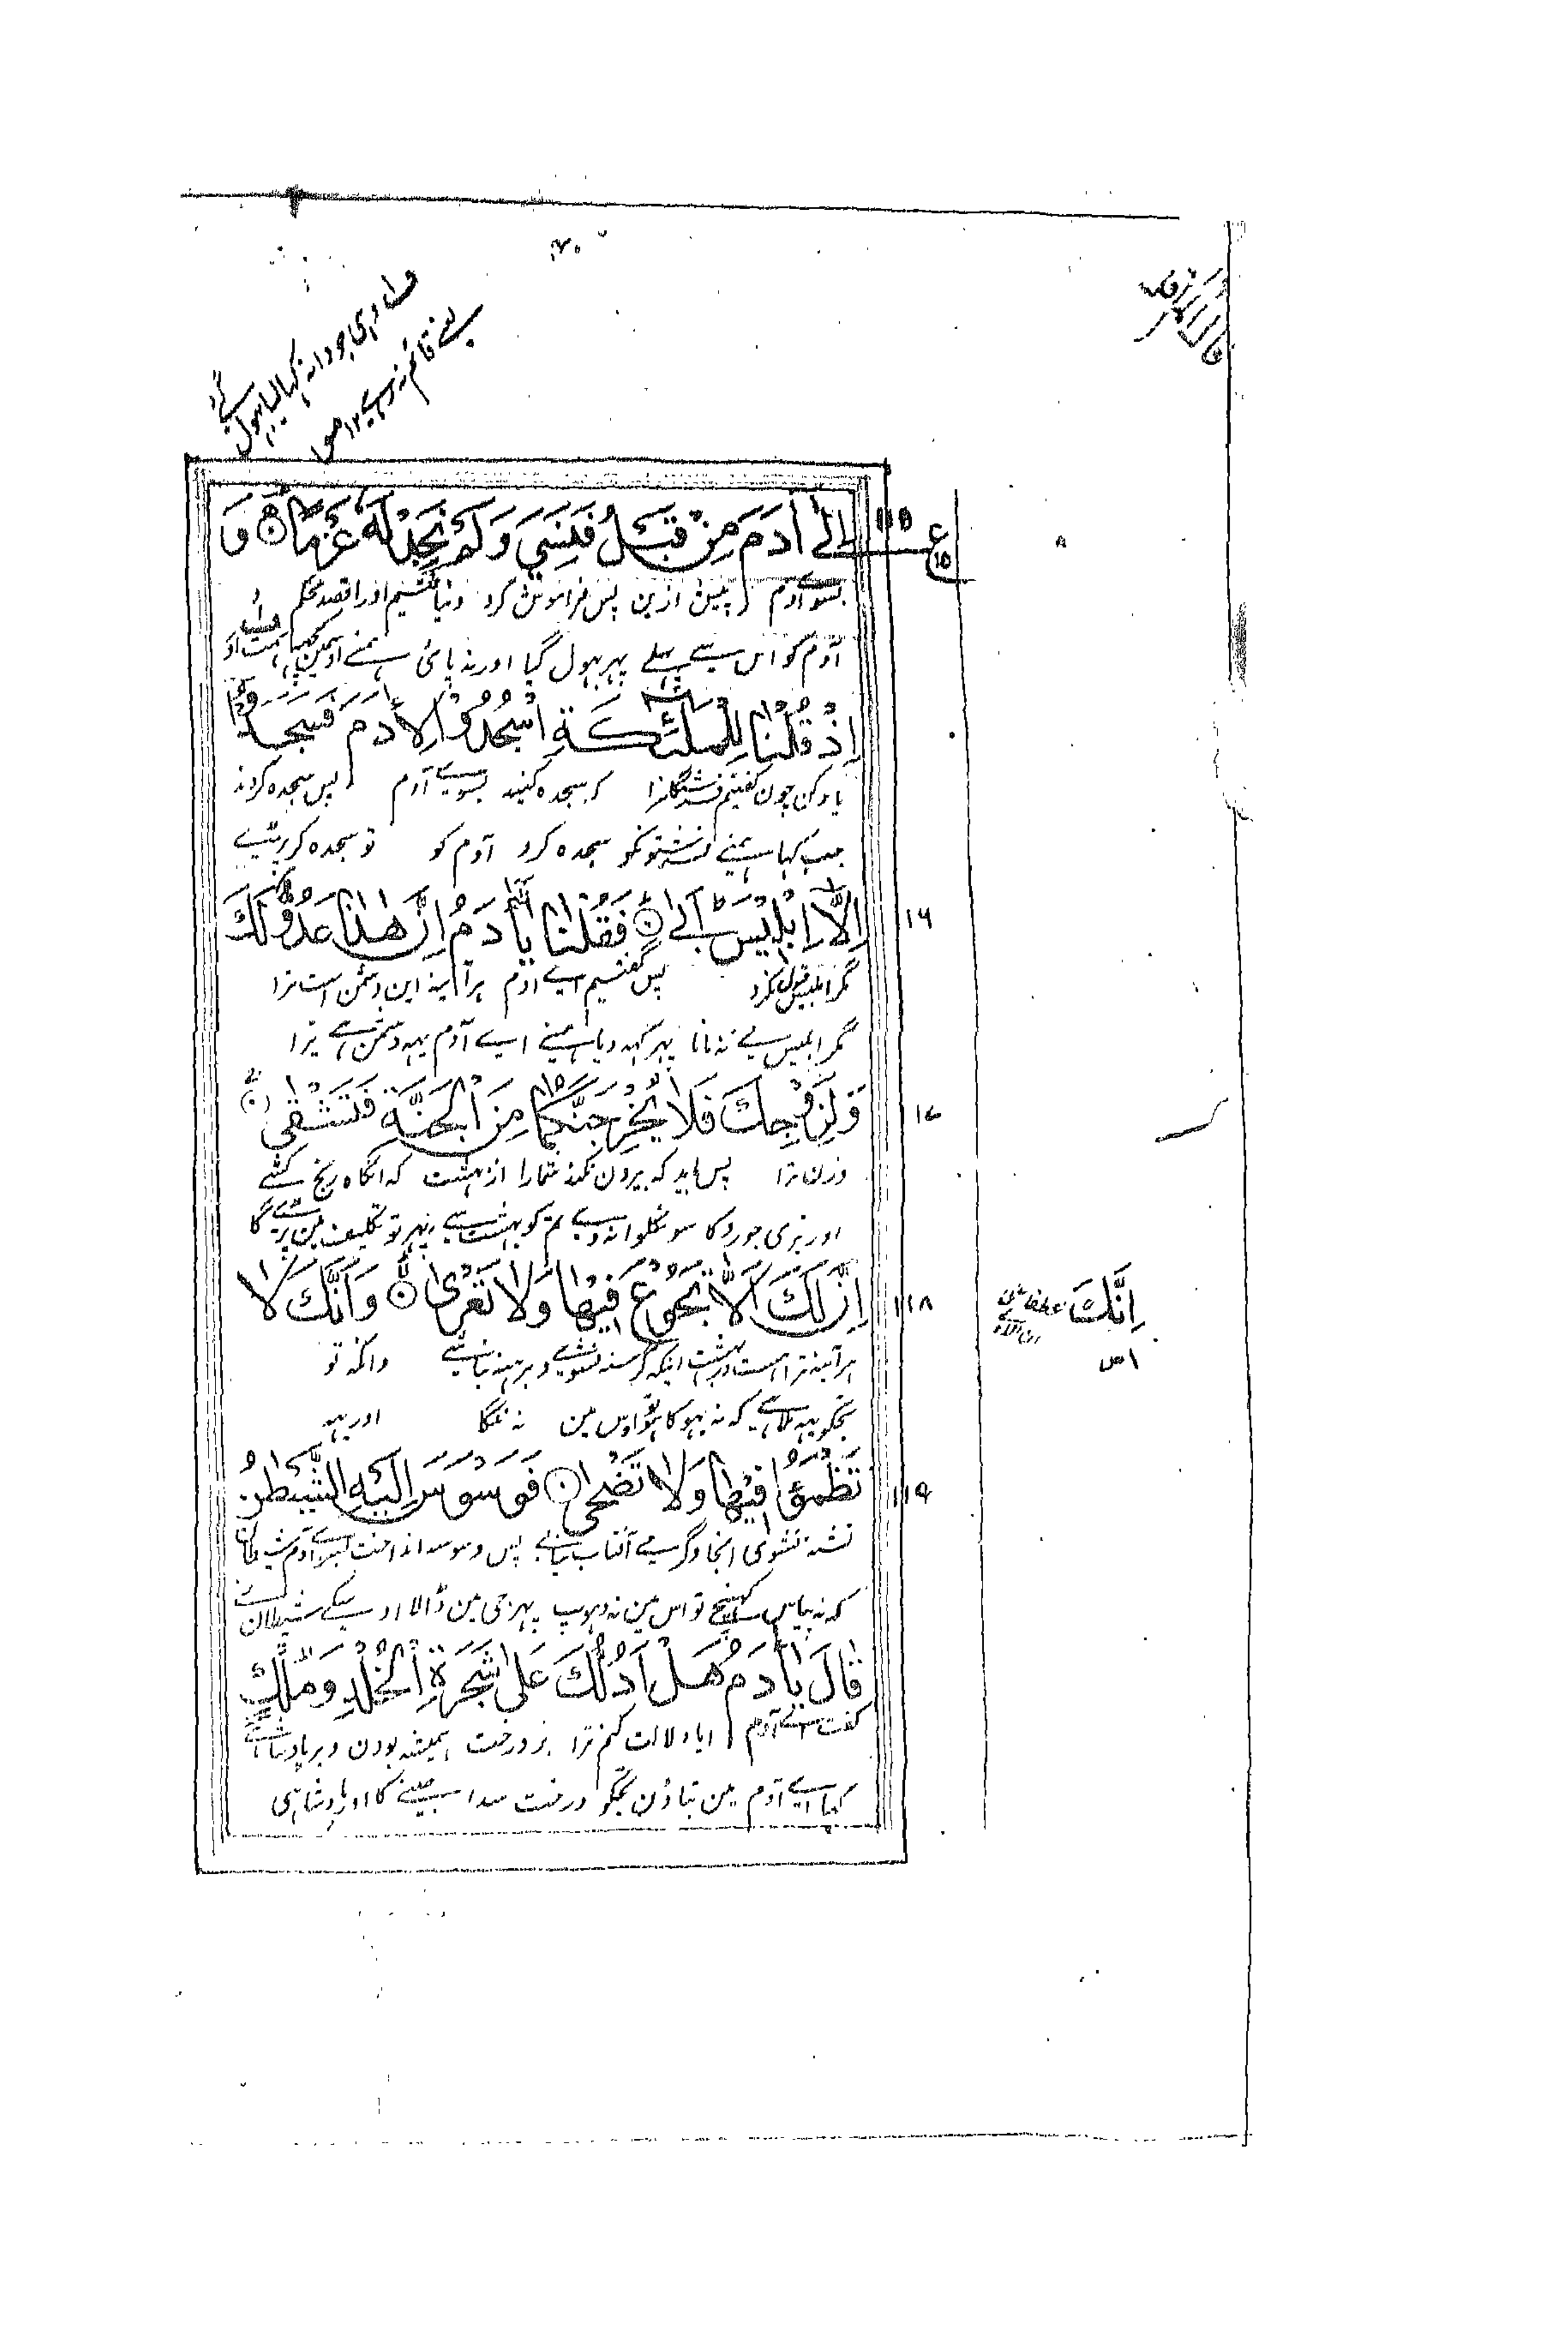 ف١ وہی جو دانہ کہا لیا بہول گئے
یعنے قائم نہ رہے ١٢ منہ
قال الم اقل
إِلَىٰ آدَمَ مِنْ قَبْلُ فَنَسِيَ وَلَمْ نَجِدْ لَهُ عَزْمًا وَ
١١٥
ع
١٥
بسوے آدم پیش ازین پس فراموش کرد و نیافتیم او را قصد محکم
آدم کو اس سے پہلے پہر بہول گیا اور نہ پائی ہمنے اوسمین کچھ ہمت اور
إِذْ قُلْنَا لِلْمَلٰئِكَةِ اسْجُدُوْا لِأٰدَمَ فَسَجَدُوْا
یاد کن چون گفتیم فرشتگانرا کہ سجدہ کنید بسوے آدم پس سجدہ کردند
جب کہا ہمنے فرشتونکو سجدہ کرو آدم کو تو سجدہ کر پڑے
إِلَّا إِبْلِيْسَ أَبٰى فَقُلْنَا يٰأٰدَمُ إِنَّ هٰذَا عَدُوٌّ لَكَ
١١٦
مگر ابلیس قبول نکرد پس گفتیم اے آدم ہر آینہ این دشمن است ترا
مگر ابلیس نے نہ مانا پہر کہہ دیا ہمنے اے آدم یہہ دشمن ہے تیرا
وَلِزَوْجِكَ فَلَا يُخْرِجَنَّكُمَا مِنَ الْجَنَّةِ فَتَشْقٰى
١١٧
وزن ترا پس باید کہ بیرون نکند شمارا از بہشت کہ انگاہ رنج کشے
اور تیری جورو کا سو نکلوا نہ دے تم کو بہشت سے پہر تو تکلیف مین پڑے گا
إِنَّ لَكَ أَلَّا تَجُوْعَ فِيْهَا وَلَا تَعْرٰى وَأَنَّكَ لَا
١١٨
إِنَّكَ
ہر آینہ ترا ہست در بہشت اینکہ گرسنہ نشوے و برہنہ نباشے و آنکہ تو
تجکو یہہ ملا ہے کہ نہ بہوکا ہو تو اوس مین نہ ننگا اور یہہ
تَظْمَؤُا فِيْهَا وَلَا تَضْحٰى فَوَسْوَسَ إِلَيْهِ الشَّيْطٰنُ
١١٩
تشنہ نشوی اینجا و گرمے آفتاب نیابے پس وسوسہ انداخت بسوے آدم شیطان
کہ نہ پیاس کہینچے تو اس مین نہ دہوپ پہر جی مین ڈالا اوسکے شیطان نے
قَالَ يٰأٰدَمُ هَلْ أَدُلُّكَ عَلٰى شَجَرَةِ الْخُلْدِ وَمُلْكٍ
گفت اے آدم ایا دلالت کنم ترا بر درخت ہمیشہ بودن و بر بادشاہے
کہا اے آدم مین بتاؤن تجکو درخت سدا جینے کا اور بادشاہی